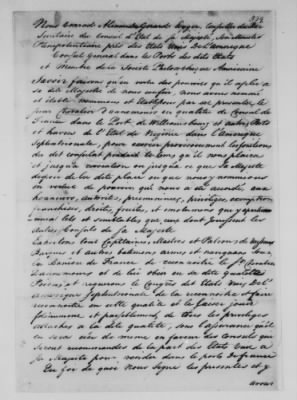 Nous Conrad Alexandre Gerard Ecuyer, Conseiller du Roi
Secretaire du Conseil d'Etat de sa Majesté, Son Ministre
Plenipotentiaire près des Etats Unis De l'amerique
Consul General dans les Ports des dits Etats
et Membre de la Société Philosophique Americaine
Savoir faisons qu'en vertu des pouvoirs qu'il a plu à
sa dite Majesté de nous confier, nous avons nommé
et établi nommons et etablissons par ces presentes, le
sieur Chevalier D'annemours en qualité de Consul de
France dans le Port de Williamsbourg et autres Ports
et havres de l'Etat de Virginie dans l'amerique
Septentrionale, pour exercer provisionnellement les fonctions
du dit consulat pendant le tems qu'il nous plaira,
et jusqu'à revocation ou jusqu'à ce que Sa Majesté
dispose de la dite place ou que nous y nommions
en vertu de pouvoir que nous a été accordé aux
honneurs, autorités, preeminences, privileges, exemptions
franchises, droits, fruits, et emolumens qui y appartiennent
et tels et semblables que ceux dont jouissent les
autres Consuls de sa Majesté
Enjoignons tous Capitaines, Maitres et Patrons de vaisseaux
Barques et autres batimens armés et navigans sous
la Banniere de France de reconnoitre le Sr Chevalier
D'annemours et de lui obeir en sa dite qualité
Prions, et requerons le Congrès des Etats Unis De l'
amerique Septentrionale de le reconnoitre et faire
reconnoitre en cette qualité et le faire jouir
pleinement et paisiblement de tous les privileges
attachés à la dite qualité, sous l'assurance qu'il
en sera usé de meme en faveur des consuls qui
seront recommandés de la part des Etats Unis à
sa Majesté pour resider dans le ports de france
En foi de quoi Nous signé les presentes et y
avons